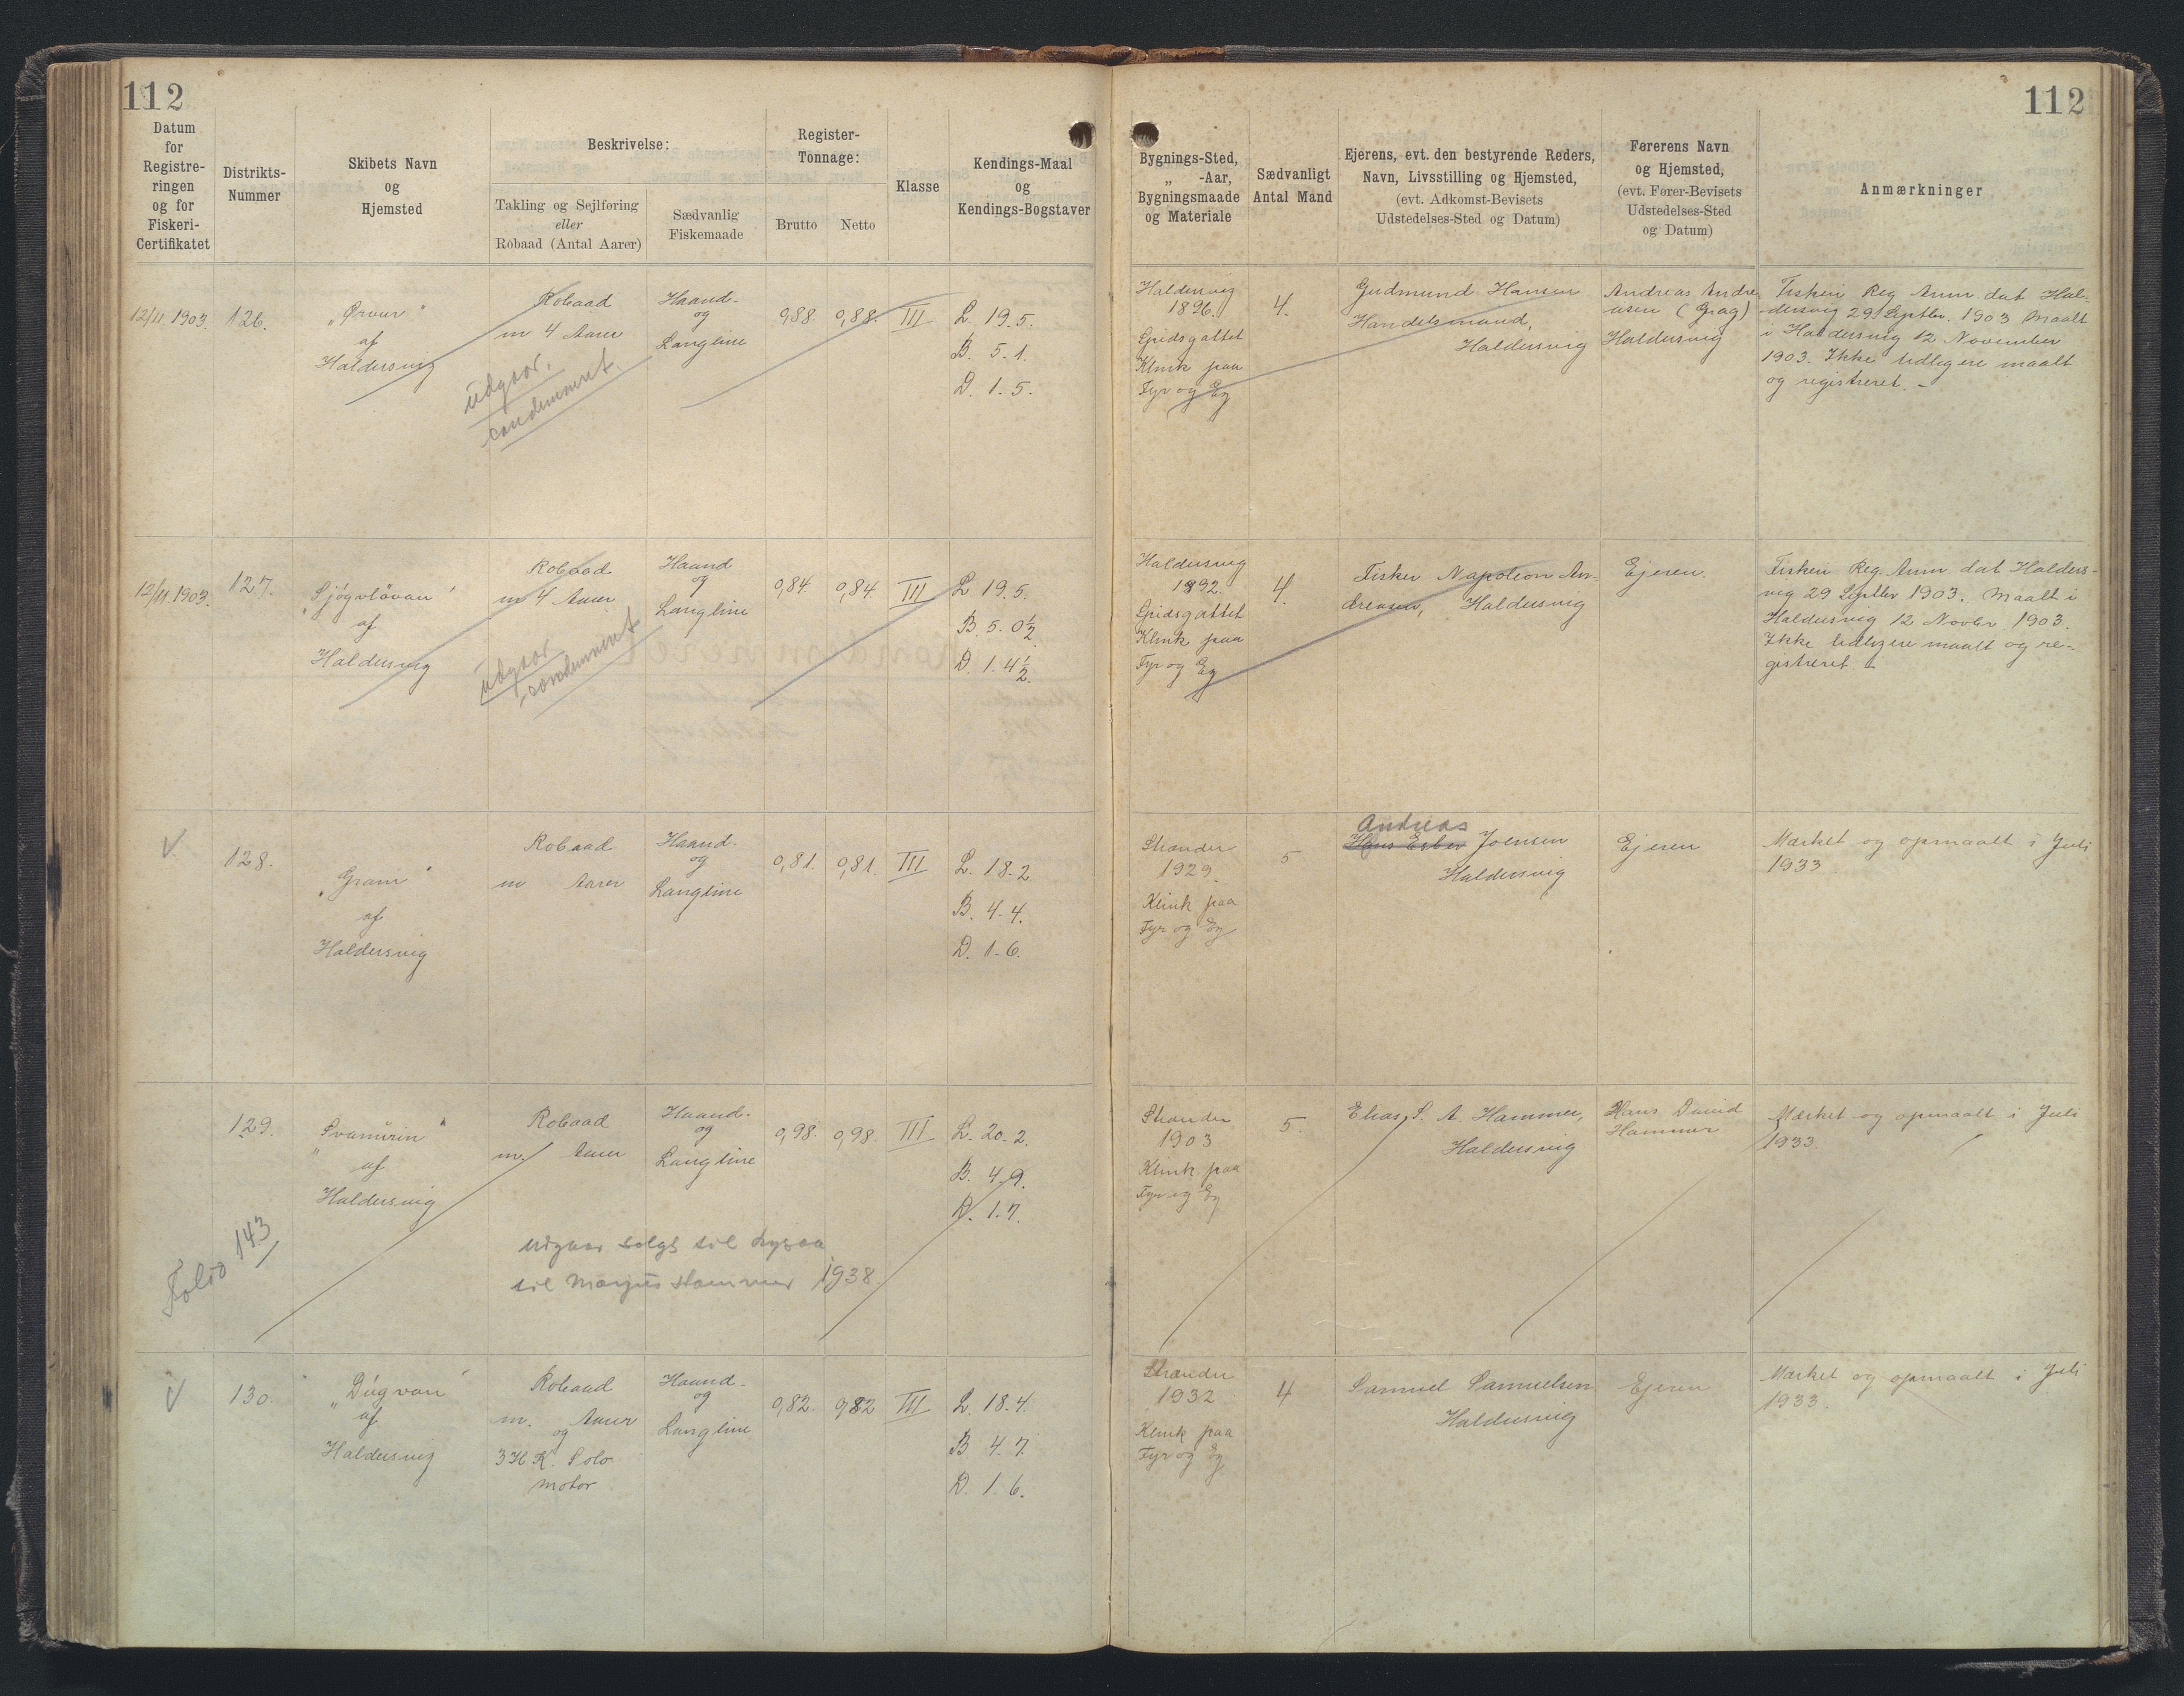 112
112
Datum
for
Registre-
ringen
og for
Fiskeri-
Certifikatet
Distrikts-
Nummer
Skibets Navn
og
Hjemsted
Beskrivelse:
Takling og Sejlføring
eller
Robaad (Antal Aarer)
Sædvanlig
Fiskemaade
Register-
Tonnage:
Brutto
Netto
Klasse
Kendings-Maal
og
Kendings-Bogstaver
Bygnings-Sted,
„ -Aar,
Bygningsmaade
og Materiale
Sædvanligt
Antal Mand
Ejerens, evt. den bestyrende Reders,
Navn, Livsstilling og Hjemsted,
(evt. Adkomst-Bevisets
Udstedelses-Sted og Datum)
Førerens Navn
og Hjemsted,
(evt. Fører-Bevisets
Udstedelses-Sted
og Datum)
Anmærkninger
12/11 1903.
126.
„Ørvur“
af
Haldersvig
Robaad
m 4 Aarer
udgaar,
condemneret.
Haand-
og
Langline
0,88.
0,88.
III
L. 19.5.
B. 5.1.
D. 1.5.
Haldersvig
1896.
Spidsgattet
Klink paa
Fyr og Eg
4.
Gudmund Hansen
Handelsmand,
Haldersvig
Andreas Andre-
asen (Grag)
Haldersvig
Fiskeri Reg Anm. dat Hal-
dersvig 29 Septbr. 1903 Maalt
i Haldersvig 12 November
1903. Ikke tidligere maalt
og registreret. –
12/11 1903.
127.
„Sjógvlávan“
af
Haldersvig
Robaad
m 4 Aarer
udgaar
condemneret
Haand
og
Langline
0,84.
0,84.
III
L 19.5.
B. 5.0½
D. 1.4½.
Haldersvig
1892.
Spidsgattet
Klink paa
Fyr og Eg
4.
Fisker Napoleon An-
dreasen, Haldersvig
Ejeren.
Fiskeri Reg. Anm dat Halders-
vig 29 Septbr 1903. Maalt i
Haldersvig 12 Novbr 1903.
Ikke tidligere maalt og re-
gistreret. –
V
128.
„Gram“
af
Haldersvig
Robaad
m Aarer
Haand-
og
Langline
0,81.
0,81.
III
L. 18.2
B. 4.4.
D. 1.6.
Strænder
1929.
Klink paa
Fyr og Eg
5
Andreas
Hans Joensen
Haldersvig
Ejeren
Mærket og opmaalt i Juli
1933
129.
„Svanurin“
af
Haldersvig
Folio 143
Robaad
m. Aarer
Haand-
og
Langline
0,98.
0,98.
III
L. 20.2.
B. 4.9.
D. 1.7.
udgaar solgt til
til Marjus Hammer 1938.
Strænder
1903
Klink paa
Fyr og Eg
5.
Elias S. A. Hammer,
Haldersvig
Hans David
Hammer
Mærket og opmaalt i Juli
1933.
V
130.
„Dúgvan“
af
Haldersvig
Robaad
m. Aarer
og
3 H K. Solo
motor
Haand-
og
Langline
0,82.
0,82
III
L. 18.4.
B 4.7.
D. 1.6.
Strænder
1932
Klink paa
Fyr og Eg
4
Samuel Samuelsen
Haldersvig
Ejeren
Mærket og opmaalt i Juli
1933.